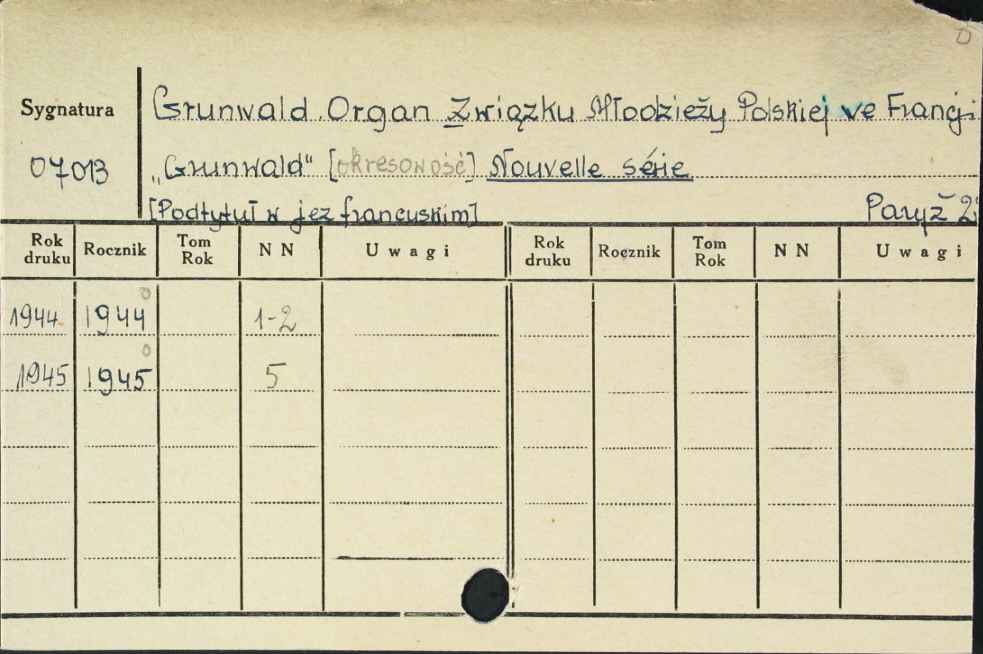 Sygnatura
07013
Grunwald. Organ Związku Młodzieży Polskiej we Francji.
"Grunwald" [okresowość] Nouvelle série
[Podtytuł w jęz francuskim] Paryż
Rok druku Rocznik Tom Rok N N Uwagi Rok druku Rocznik Tom Rok N N Uwagi
1944 1944 1-2
1945 1945 5